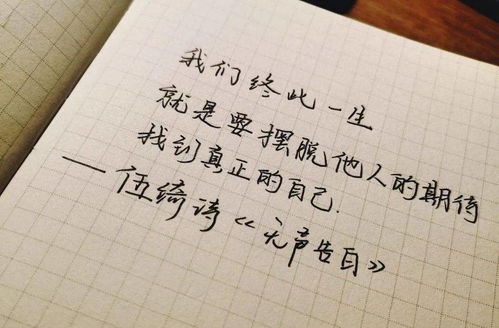 我们终此一生
就是要摆脱他人的期待
找到真正的自己.
—伍绮诗《无声告白》